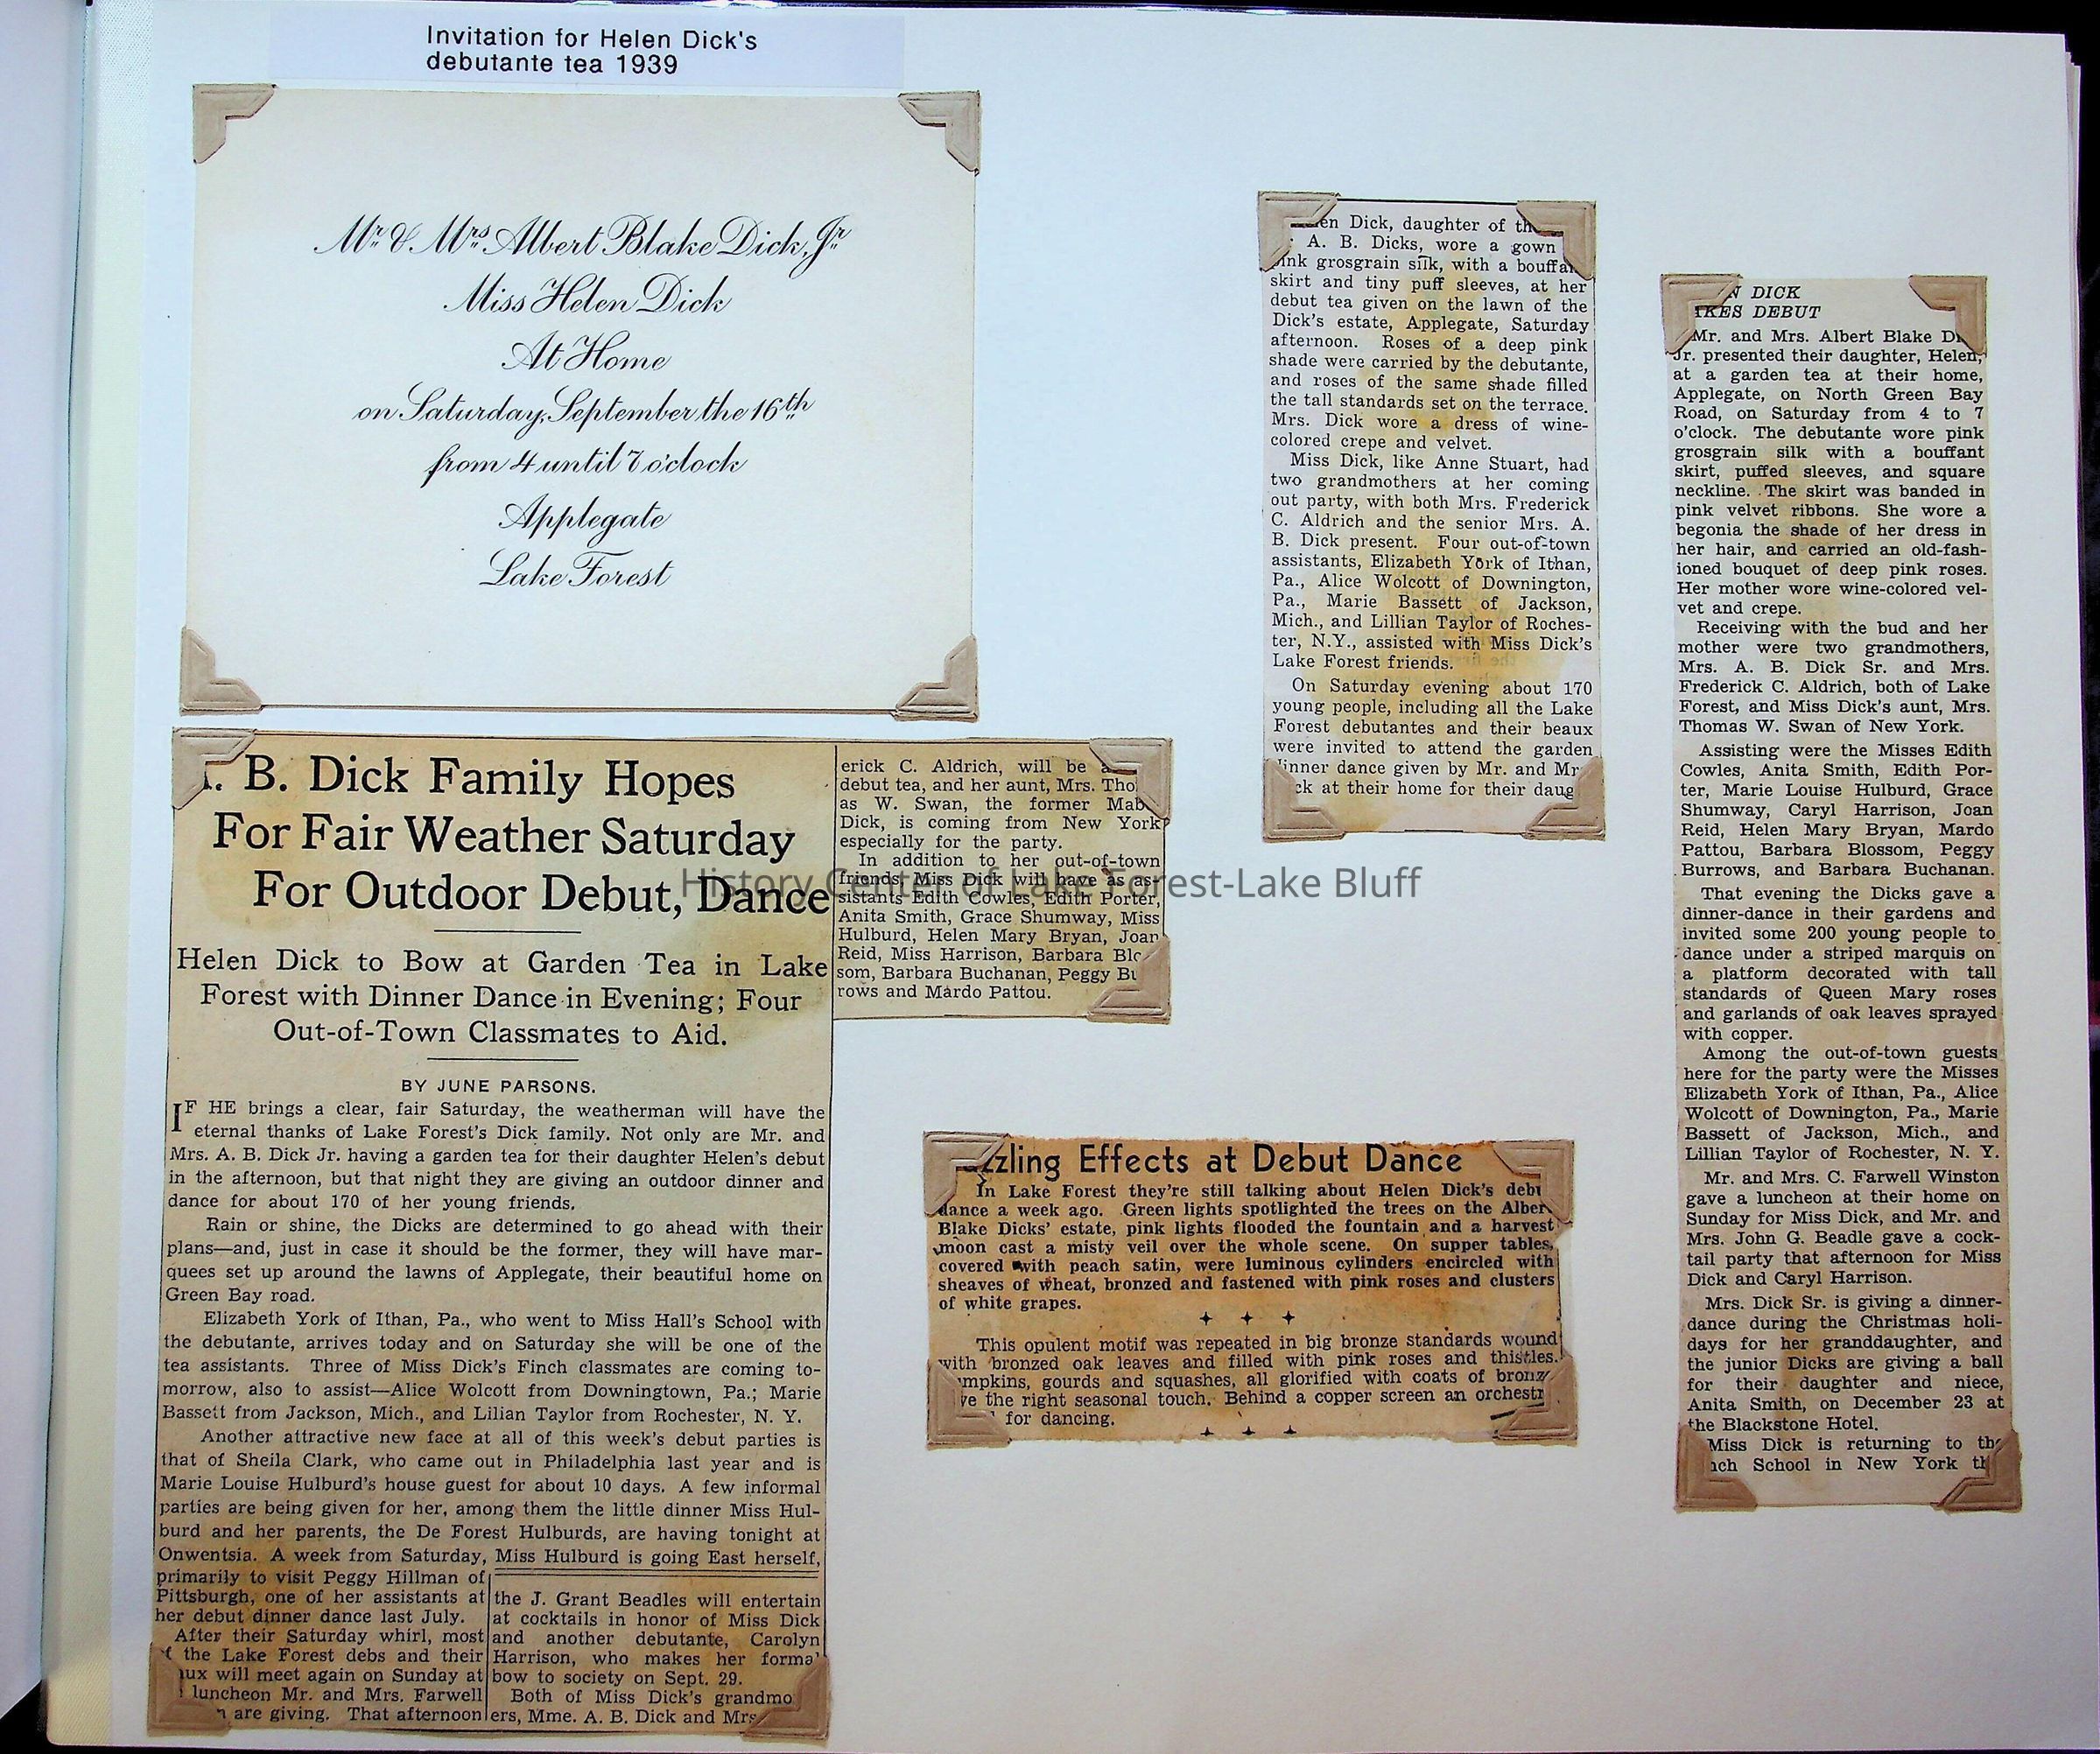 Invitation for Helen Dick's
debutante tea 1939
Mr. & Mrs. Albert Blake Dick, Jr.
Miss Helen Dick
At Home
on Saturday, September the 16th
from 4 until 7 o'clock
Applegate
Lake Forest
. B. Dick Family Hopes
For Fair Weather Saturday
For Outdoor Debut, Dance
Helen Dick to Bow at Garden Tea in Lake
Forest with Dinner Dance in Evening; Four
Out-of-Town Classmates to Aid.
BY JUNE PARSONS.
IF HE brings a clear, fair Saturday, the weatherman will have the
eternal thanks of Lake Forest's Dick family. Not only are Mr. and
Mrs. A. B. Dick Jr. having a garden tea for their daughter Helen's debut
in the afternoon, but that night they are giving an outdoor dinner and
dance for about 170 of her young friends.
Rain or shine, the Dicks are determined to go ahead with their
plans—and, just in case it should be the former, they will have mar-
quees set up around the lawns of Applegate, their beautiful home on
Green Bay road.
Elizabeth York of Ithan, Pa., who went to Miss Hall's School with
the debutante, arrives today and on Saturday she will be one of the
tea assistants. Three of Miss Dick's Finch classmates are coming to-
morrow, also to assist—Alice Wolcott from Downingtown, Pa.; Marie
Bassett from Jackson, Mich., and Lilian Taylor from Rochester, N. Y.
Another attractive new face at all of this week's debut parties is
that of Sheila Clark, who came out in Philadelphia last year and is
Marie Louise Hulburd's house guest for about 10 days. A few informal
parties are being given for her, among them the little dinner Miss Hul-
burd and her parents, the De Forest Hulburds, are having tonight at
Onwentsia. A week from Saturday, Miss Hulburd is going East herself,
primarily to visit Peggy Hillman of
Pittsburgh, one of her assistants at
her debut dinner dance last July.
After their Saturday whirl, most
the Lake Forest debs and their
ux will meet again on Sunday at
luncheon Mr. and Mrs. Farwell
are giving. That afternoon
the J. Grant Beadles will entertain
at cocktails in honor of Miss Dick
and another debutante, Carolyn
Harrison, who makes her formal
bow to society on Sept. 29.
Both of Miss Dick's grandmo
ers, Mme. A. B. Dick and Mrs.
erick C. Aldrich, will be a
debut tea, and her aunt, Mrs. Tho
as W. Swan, the former Mab
Dick, is coming from New York
especially for the party.
In addition to her out-of-town
friends, Miss Dick will have as as-
sistants Edith Cowles, Edith Porter,
Anita Smith, Grace Shumway, Miss
Hulburd, Helen Mary Bryan, Joan
Reid, Miss Harrison, Barbara Blo
som, Barbara Buchanan, Peggy Bu
rows and Mardo Pattou.
History Center of Lake Forest-Lake Bluff
en Dick, daughter of th
A. B. Dicks, wore a gown
pink grosgrain silk, with a bouffan
skirt and tiny puff sleeves, at her
debut tea given on the lawn of the
Dick's estate, Applegate, Saturday
afternoon. Roses of a deep pink
shade were carried by the debutante,
and roses of the same shade filled
the tall standards set on the terrace.
Mrs. Dick wore a dress of wine-
colored crepe and velvet.
Miss Dick, like Anne Stuart, had
two grandmothers at her coming
out party, with both Mrs. Frederick
C. Aldrich and the senior Mrs. A.
B. Dick present. Four out-of-town
assistants, Elizabeth York of Ithan,
Pa., Alice Wolcott of Downington,
Pa., Marie Bassett of Jackson,
Mich., and Lillian Taylor of Roches-
ter, N.Y., assisted with Miss Dick's
Lake Forest friends.
On Saturday evening about 170
young people, including all the Lake
Forest debutantes and their beaux
were invited to attend the garden
dinner dance given by Mr. and Mr
ck at their home for their daug
zzling Effects at Debut Dance
In Lake Forest they're still talking about Helen Dick's debu
dance a week ago. Green lights spotlighted the trees on the Alber
Blake Dicks' estate, pink lights flooded the fountain and a harvest
moon cast a misty veil over the whole scene. On supper tables,
covered with peach satin, were luminous cylinders encircled with
sheaves of wheat, bronzed and fastened with pink roses and clusters
of white grapes.
This opulent motif was repeated in big bronze standards wound
with bronzed oak leaves and filled with pink roses and thistles.
umpkins, gourds and squashes, all glorified with coats of bronz
ve the right seasonal touch. Behind a copper screen an orchestr
for dancing.
N DICK
AKES DEBUT
Mr. and Mrs. Albert Blake Di
Jr. presented their daughter, Helen,
at a garden tea at their home,
Applegate, on North Green Bay
Road, on Saturday from 4 to 7
o'clock. The debutante wore pink
grosgrain silk with a bouffant
skirt, puffed sleeves, and square
neckline. The skirt was banded in
pink velvet ribbons. She wore a
begonia the shade of her dress in
her hair, and carried an old-fash-
ioned bouquet of deep pink roses.
Her mother wore wine-colored vel-
vet and crepe.
Receiving with the bud and her
mother were two grandmothers,
Mrs. A. B. Dick Sr. and Mrs.
Frederick C. Aldrich, both of Lake
Forest, and Miss Dick's aunt, Mrs.
Thomas W. Swan of New York.
Assisting were the Misses Edith
Cowles, Anita Smith, Edith Por-
ter, Marie Louise Hulburd, Grace
Shumway, Caryl Harrison, Joan
Reid, Helen Mary Bryan, Mardo
Pattou, Barbara Blossom, Peggy
Burrows, and Barbara Buchanan.
That evening the Dicks gave a
dinner-dance in their gardens and
invited some 200 young people to
dance under a striped marquis on
a platform decorated with tall
standards of Queen Mary roses
and garlands of oak leaves sprayed
with copper.
Among the out-of-town guests
here for the party were the Misses
Elizabeth York of Ithan, Pa., Alice
Wolcott of Downington, Pa., Marie
Bassett of Jackson, Mich., and
Lillian Taylor of Rochester, N. Y.
Mr. and Mrs. C. Farwell Winston
gave a luncheon at their home on
Sunday for Miss Dick, and Mr. and
Mrs. John G. Beadle gave a cock-
tail party that afternoon for Miss
Dick and Caryl Harrison.
Mrs. Dick Sr. is giving a dinner-
dance during the Christmas holi-
days for her granddaughter, and
the junior Dicks are giving a ball
for their daughter and niece,
Anita Smith, on December 23 at
the Blackstone Hotel.
Miss Dick is returning to the
nch School in New York th